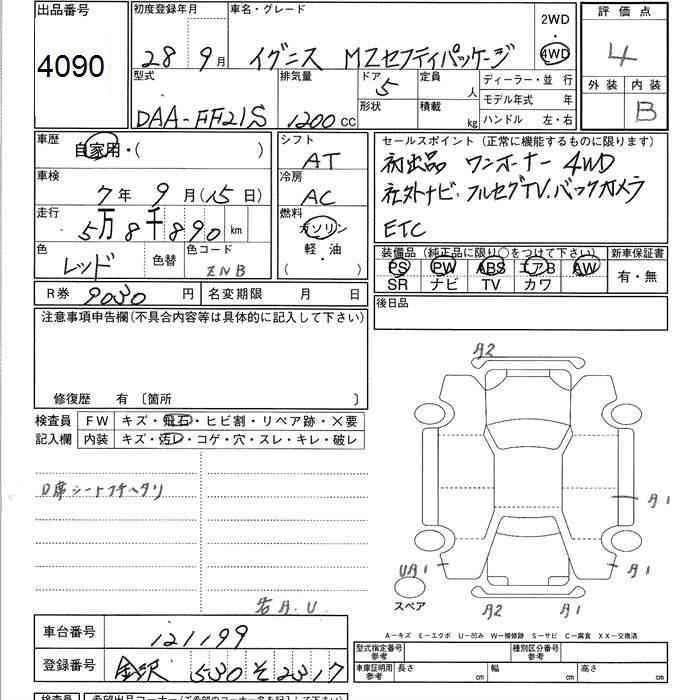 出品番号
4090
初度登録年月
28 9月
車名・グレード
イグニス MZセフティパッケージ
2WD
・
4WD
評価点
4
外装 内装
B
型式
DAA-FF21S
排気量
1200 CC
ドア
5
形状
定員
人
積載
kg
ディーラー・並 行
モデル年式 年
ハンドル 左・右
車歴
自家用・( )
車検
7年 9月(15日)
走行
5万8千890 km
色
レッド
色替
色コード
ZNB
シフト
AT
冷房
AC
燃料
ガソリン
軽・油
( )
セールスポイント(正常に機能するものに限ります)
初出品 ワンオーナー 4WD
社外ナビ.フルセグTV.バックカメラ
ETC
装備品(純正品に限り○をつけて下さい)
PS PW ABS エアB AW
SR ナビ TV カワ
新車保証書
有・無
R券 9030 円
名変期限 月 日
後日品
注意事項申告欄(不具合内容等は具体的に記入して下さい)
修復歴 有 〔箇所 〕
検査員
記入欄
FW キズ・飛石・ヒビ割・リペア跡・×要
内装 キズ・汚レ・コゲ・穴・スレ・キレ・破レ
D席シートフチヘタリ
若A.U
A2
A1
UA1
A1
A2
A1
スペア
A-キズ E-エクボ U-凹み W-補修跡 S-サビ C-腐食 XX-交換済
車台番号
121199
登録番号
金沢 530 そ 2317
型式指定番号
参考
種別区分番号
参考
車庫証明用
参考
長さ cm
幅 cm
高さ cm
検査員
希望出品コーナー(ご希望のコーナー名を記入